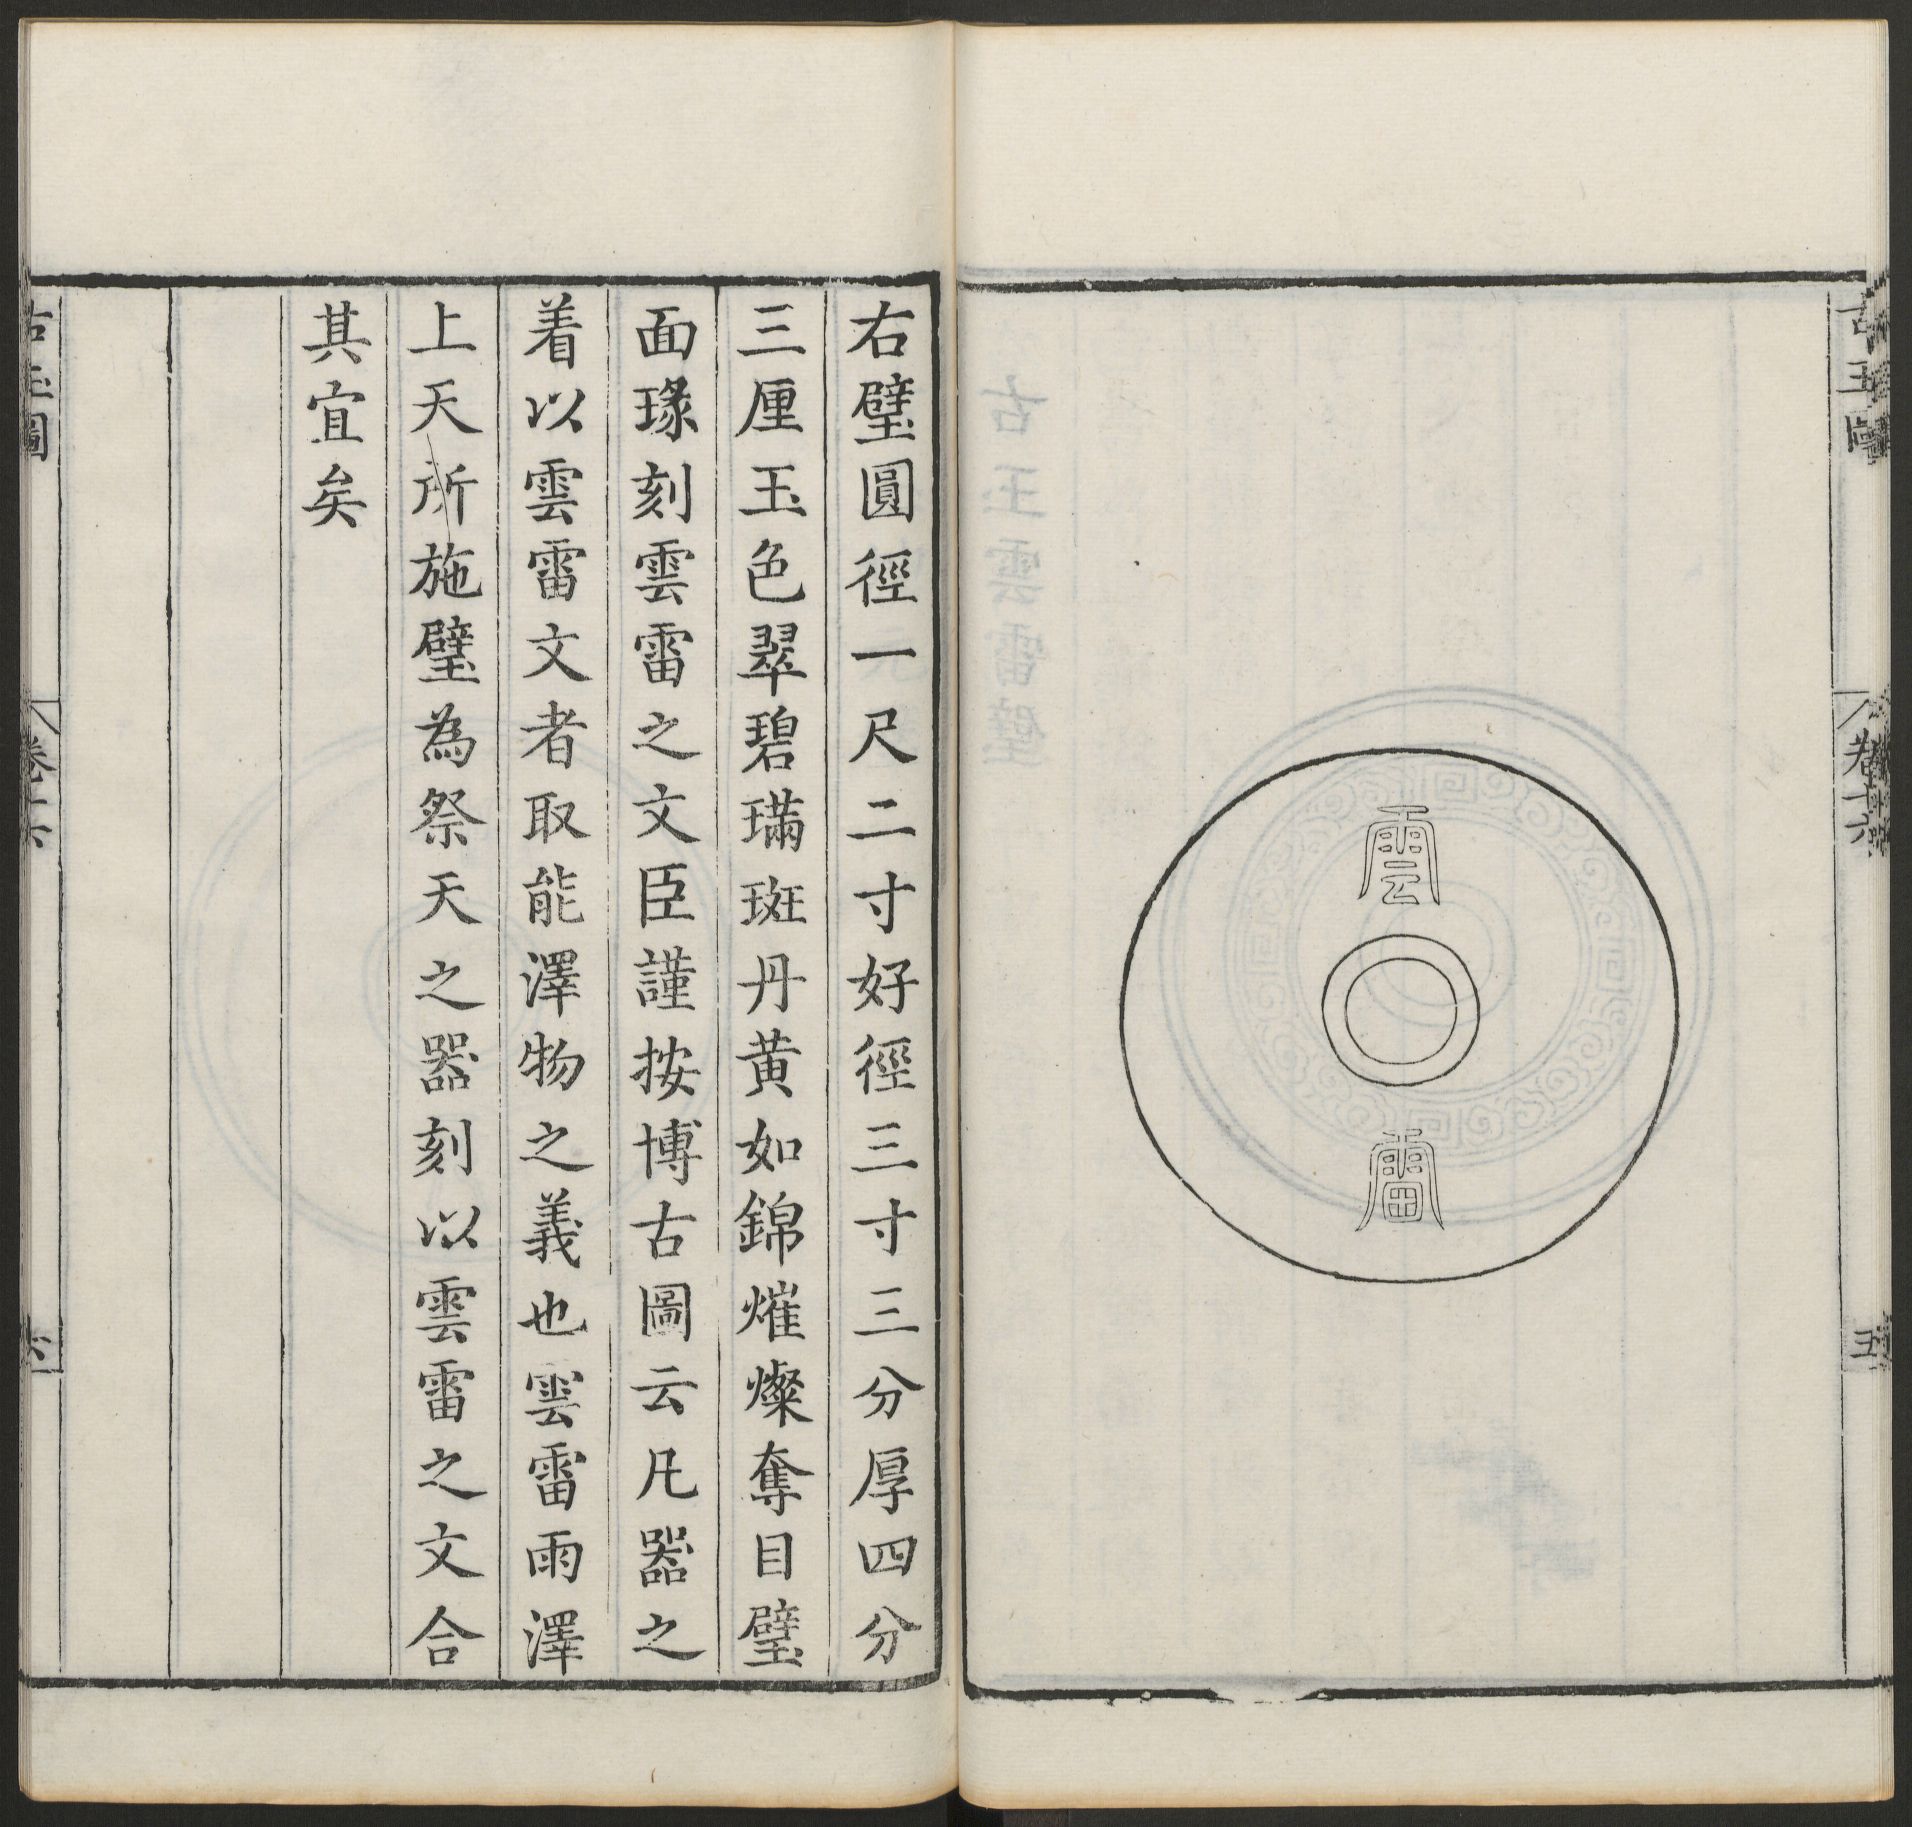 古玉圖
卷十六
五
雲
雷
右璧圓徑一尺二寸好徑三寸三分厚四分
三厘玉色翠碧璊斑丹黄如錦熣燦奪目璧
面瑑刻雲雷之文臣謹按博古圖云凡器之
着以雲雷文者取能澤物之義也雲雷雨澤
上天所施璧為祭天之器刻以雲雷之文合
其宜矣
古玉圖
卷十六
六